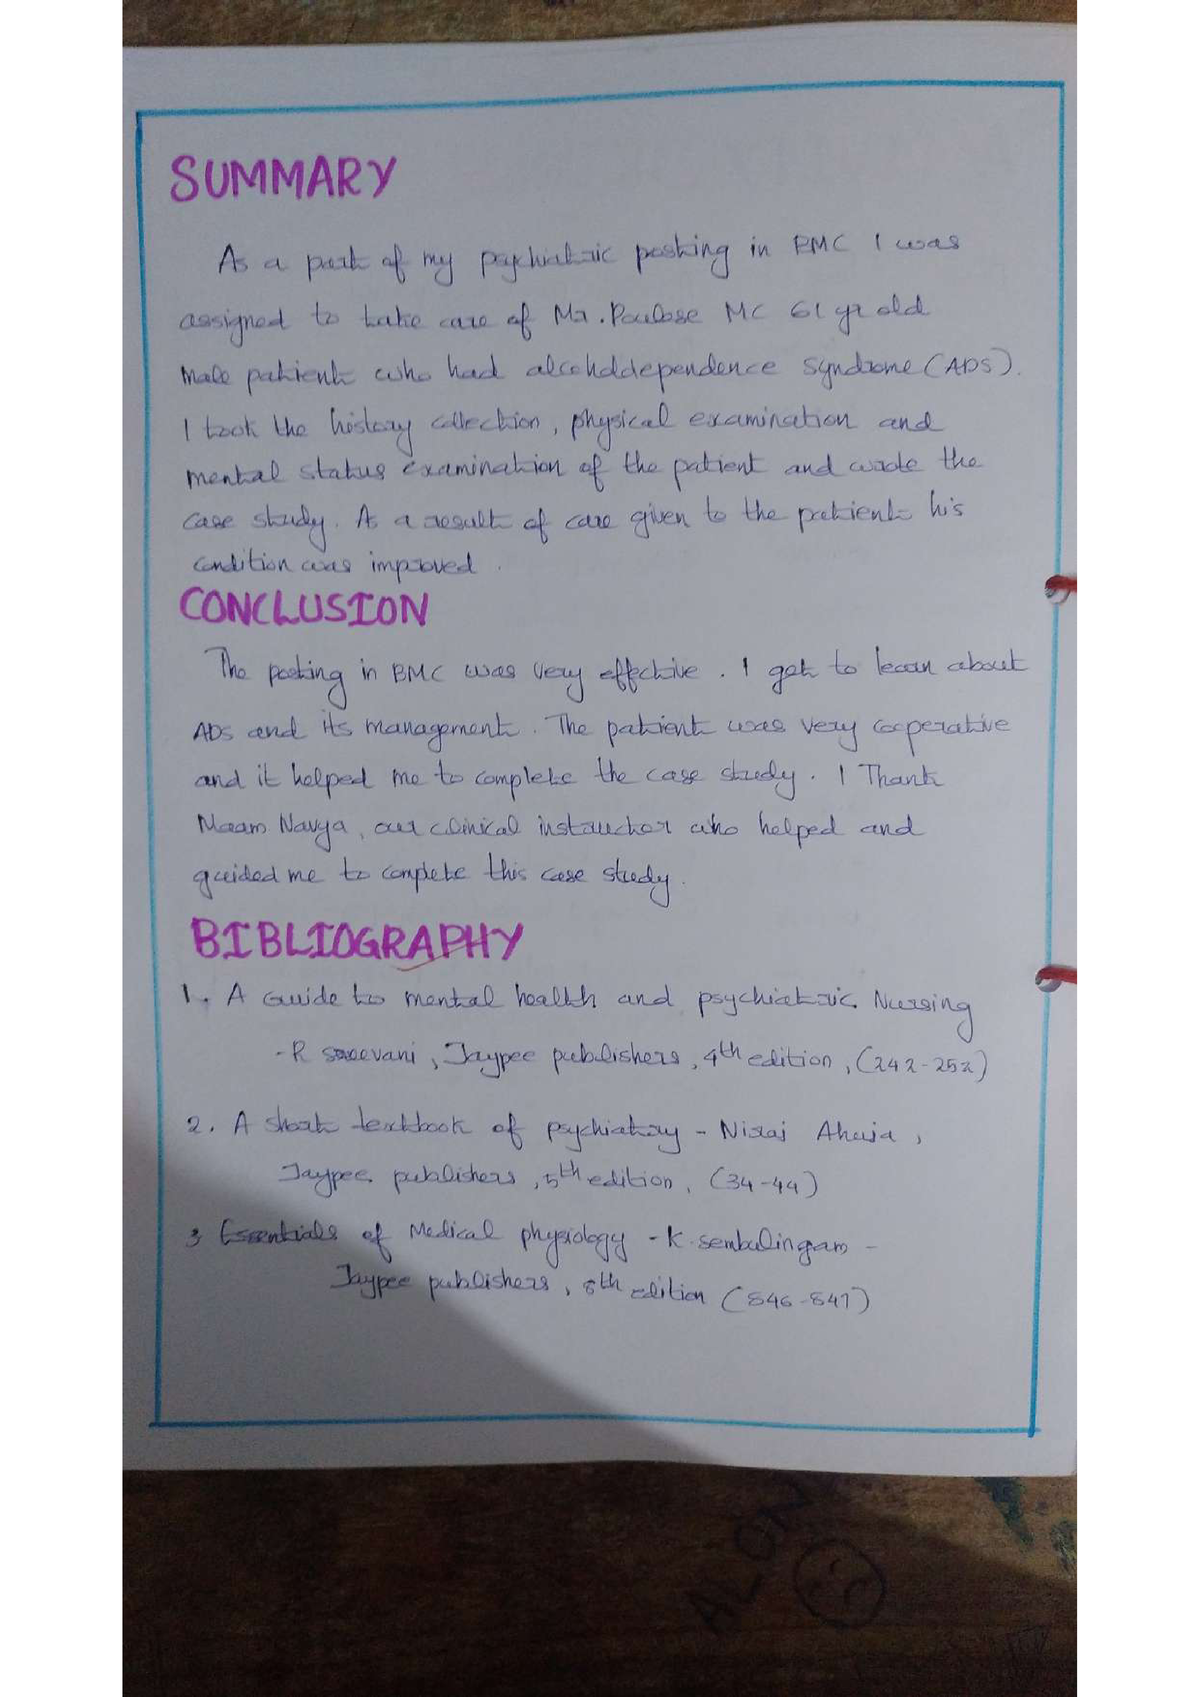 SUMMARY
As a part of my psychiatric posting in BMC I was
assigned to take care of Mr. Poulose MC 61 yr old
Male patient who had alcoholdependence syndrome (ADS).
I took the history collection, physical examination and
mental status examination of the patient and wrote the
case study. As a result of care given to the patient his
condition was improved.
CONCLUSION
The posting in BMC was very effective. I got to learn about
ADS and its management. The patient was very cooperative
and it helped me to complete the case study. I Thank
Maam Navya, our clinical instructor who helped and
guided me to complete this case study.
BIBLIOGRAPHY
1. A Guide to mental health and psychiatric Nursing
-R sreevani, Jaypee publishers, 4th edition, (242-252)
2. A short textbook of psychiatry - Niraj Ahuja,
Jaypee publishers, 5th edition, (34-44)
3 Essentials of Medical physiology - K. sembulingam -
Jaypee publishers, 8th edition (846-847)
ALON